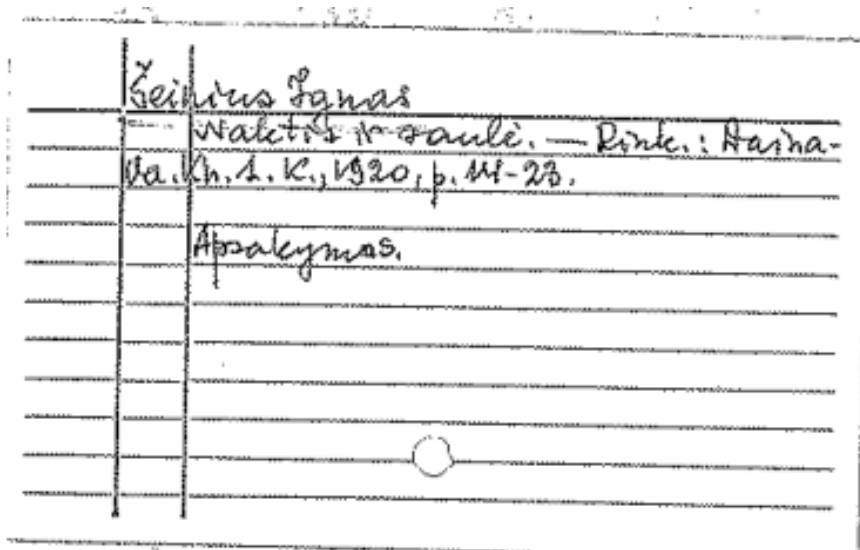 Šeinius Ignas
Naktis ir saulė. — Rink.: Daina-
va. Kn. 1. K., 1920, p. 14-23.
Apsakymas.